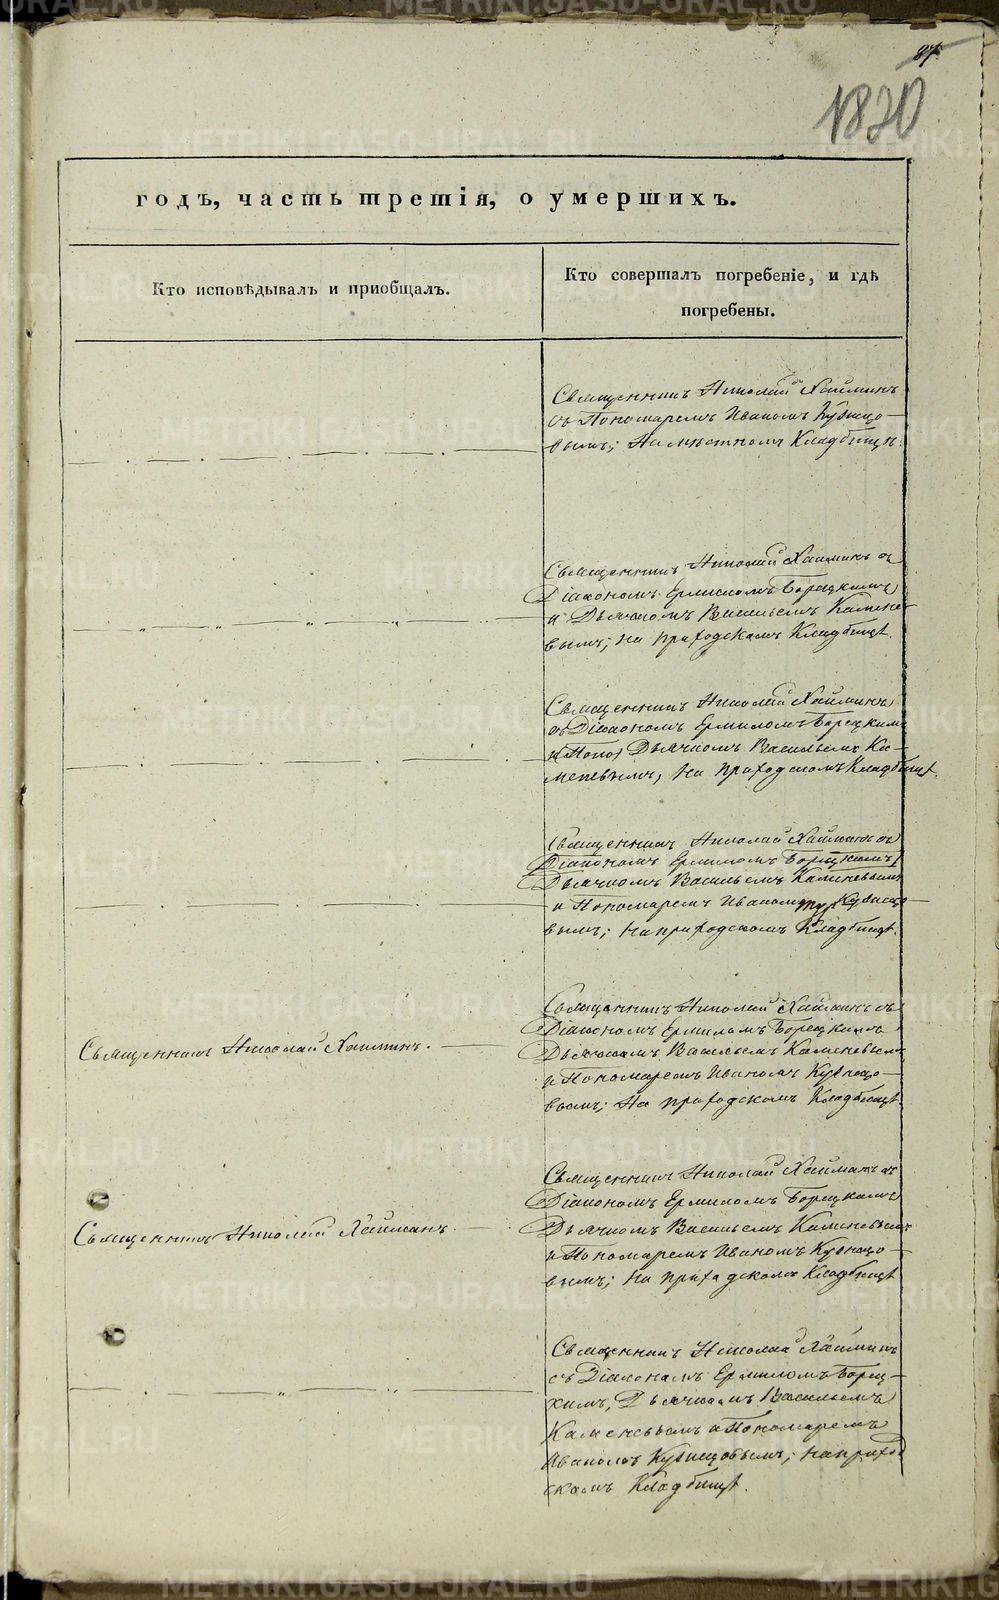 87
1830
годъ, часть третія, о умершихъ.
Кто исповѣдывалъ и приобщалъ.
Кто совершалъ погребеніе, и гдѣ
погребены.
Священникъ Николай Хайминъ
съ Пономаремъ Иваномъ Кузнецо-
вымъ; На мѣстномъ Кладбищѣ.
Священникъ Николай Хайминъ съ
Діакономъ Ермиломъ Борецкимъ
и Дьячкомъ Васильемъ Камене-
вымъ; на приходскомъ Кладбищѣ.
Священникъ Николай Хайминъ
съ Діакономъ Ермиломъ Борецкимъ
и Поно Дьячкомъ Васильемъ Ка-
меневымъ, на приходскомъ Кладбищѣ.
Священникъ Николай Хайминъ съ
Діакономъ Ермиломъ Борецкимъ,
Дьячкомъ Васильемъ Каменевымъ
и Пономаремъ Иваномъ Кузнецо-
вымъ; на приходскомъ Кладбищѣ.
Священникъ Николай Хайминъ.
Священникъ Николай Хайминъ съ
Діакономъ Ермиломъ Борецкимъ
Дьячкомъ Васильемъ Каменевымъ
и Пономаремъ Иваномъ Кузнецо-
вымъ; На приходскомъ Кладбищѣ.
Священникъ Николай Хайминъ.
Священникъ Николай Хайминъ съ
Діакономъ Ермиломъ Борецкимъ
Дьячкомъ Васильемъ Каменевымъ
и Пономаремъ Иваномъ Кузнецо-
вымъ; на приходскомъ Кладбищѣ
Священникъ Николай Хайминъ
съ Діакономъ Ермиломъ Борец-
кимъ, Дьячкомъ Васильемъ
Каменевымъ и Пономаремъ
Иваномъ Кузнецовымъ; на приход
скомъ Кладбищѣ.